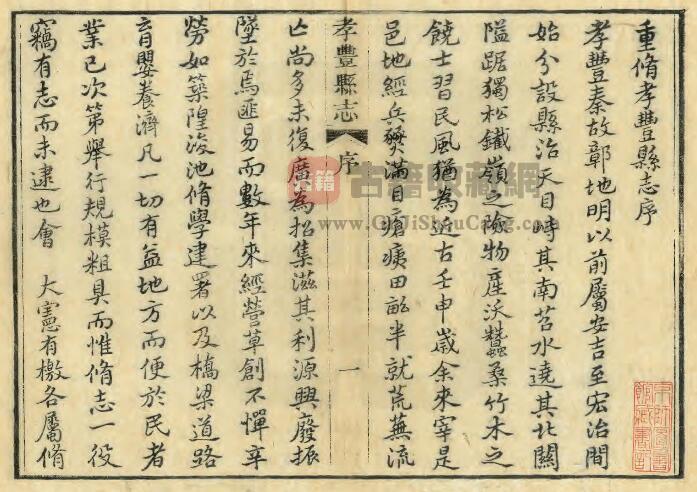 重脩孝豐縣志序
孝豐秦故鄣地明以前屬安吉至宏治間
始分設縣治天目峙其南苕水遶其北關
隘踞獨松鐵嶺之險物產沃蠶桑竹木之
饒士習民風猶為近古壬申歲余來宰是
邑地經兵燹滿目瘡痍田畝半就荒蕪流
孝豐縣志 序 一
亾尚多未復廣為招集滋其利源興廢振
墜於焉匪易而數年來經營草創不憚辛
勞如築隍浚池脩學建署以及橋梁道路
育嬰養濟凡一切有益地方而便於民者
業已次第舉行規模粗具而惟脩志一役
竊有志而未逮也會 大憲有檄各屬脩
古籍
古籍收藏網
www.GuJiShouCang.com